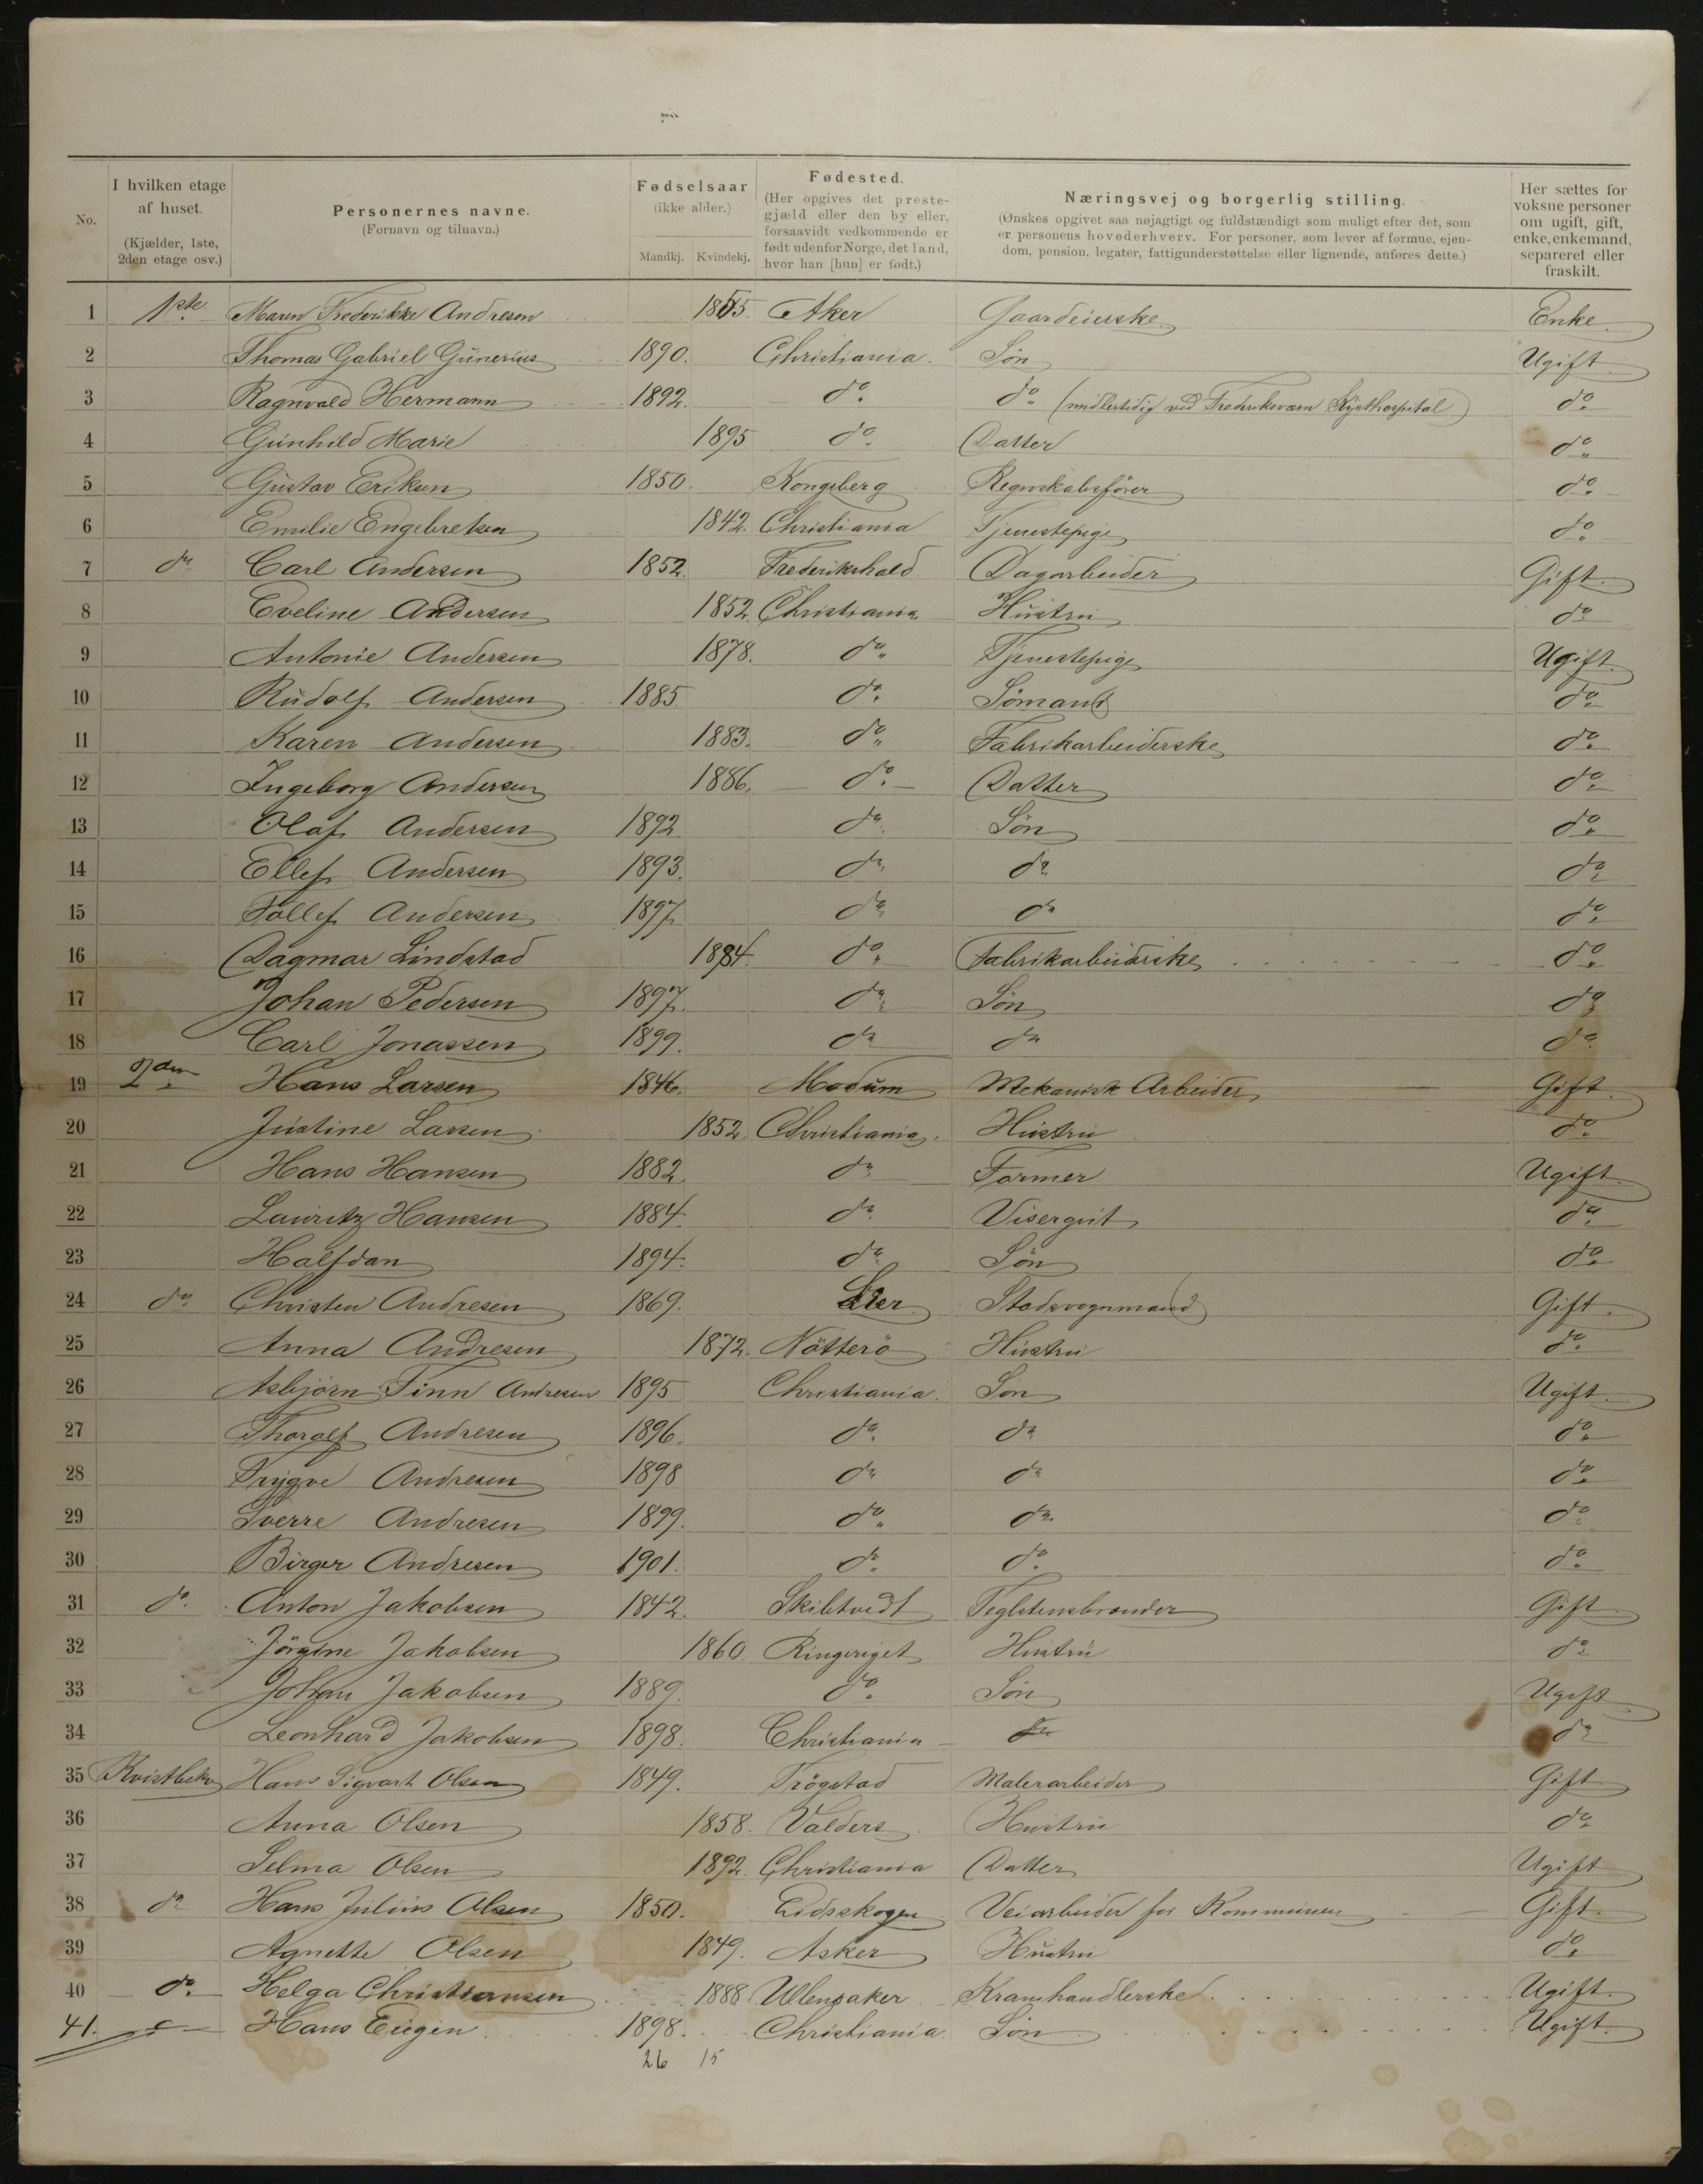 No.
I hvilken etage af huset. (Kjælder, 1ste, 2den etage osv.)
Personernes navne. (Fornavn og tilnavn.)
Fødselsaar (ikke alder.) Mandkj. Kvindekj.
Fødested. (Her opgives det prestegjæld eller den by eller, forsaavidt vedkommende er født udenfor Norge, det land, hvor han [hun] er født.)
Næringsvej og borgerlig stilling. (Ønskes opgivet saa nøjagtigt og fuldstændigt som muligt efter det, som er personens hovederhverv. For personer, som lever af formue, ejendom, pension, legater, fattigunderstøttelse eller lignende, anføres dette.)
Her sættes for voksne personer om ugift, gift, enke, enkemand, separeret eller fraskilt.
1 1ste Maren Frederikke Andresen Aker Gaardeierske Enke
2 Thomas Gabriel Gunerius 1890. Christiania. Søn Ugift
3 Ragnvald Hermann 1892. do. do. (midlertidig ved Frederiksværn Kysthospital) do.
4 Gunhild Marie 1895 do. Datter do.
5 Gustav Eriksen 1850. Kongsberg Regnskabsfører do.
6 Emilie Engebretsen 1842. Christiania Tjenestepige do.
7 do. Carl Andersen 1852. Frederikshald Dagarbeider Gift.
8 Eveline Andersen 1852. Christiania Hustru do.
9 Antonie Andersen 1878. do. Tjenestepige Ugift.
10 Rudolf Andersen 1885 do. Sömand do.
11 Karen Andersen 1883. do. Fabrikarbeiderske do.
12 Ingeborg Andersen 1886. do. Datter do.
13 Olaf Andersen 1892 do. Sön do.
14 Ellef Andersen 1893. do. do. do.
15 Tollef Andersen 1897 do. do. do.
16 Dagmar Lindstad 1884. do. Fabrikarbeiderske do.
17 Johan Pedersen 1897. do. Sön do.
18 Carl Jonassen 1899. do. do. do.
19 2den Hans Larsen 1846. Modum Mekanisk Arbeider Gift.
20 Justine Larsen 1852. Christiania. Hustru do.
21 Hans Hansen 1882. do. Former Ugift.
22 Lauritz Hansen 1884. do. Visergut do.
23 Halfdan 1894. do. Sön do.
24 do. Christen Andresen 1869. Lier Stadsvognmand Gift.
25 Anna Andresen 1872. Nötterö Hustru do.
26 Asbjörn Finn Andresen 1895 Christiania. Son Ugift.
27 Thoralf Andresen 1896. do. do. do.
28 Trygve Andresen 1898 do. do. do.
29 Sverre Andresen 1899. do. do. do.
30 Birger Andresen 1901. do. do. do.
31 do. Anton Jakobsen 1842. Skibtvedt Teglstensbrænder Gift
32 Jörgine Jakobsen 1860 Ringeriget Hustru do.
33 Johan Jakobsen 1889. do. Sön Ugift
34 Leonhard Jakobsen 1898. Christiania do. do.
35 Kvistbekv Hans Sigvart Olsen 1849. Trögstad Malerarbeider Gift
36 Anna Olsen 1858. Valders Hustru do.
37 Selma Olsen 1892. Christiania Datter Ugift
38 do. Hans Julius Olsen 1850. Eidsskogen Veiarbeider for Kommunen Gift.
39 Agnethe Olsen 1849. Asker Hustru do.
40 do. Helga Christiansen 1888 Ullensaker Kramhandlerske Ugift.
41. Hans Eugen 1898. Christiania Sön Ugift.
26 15